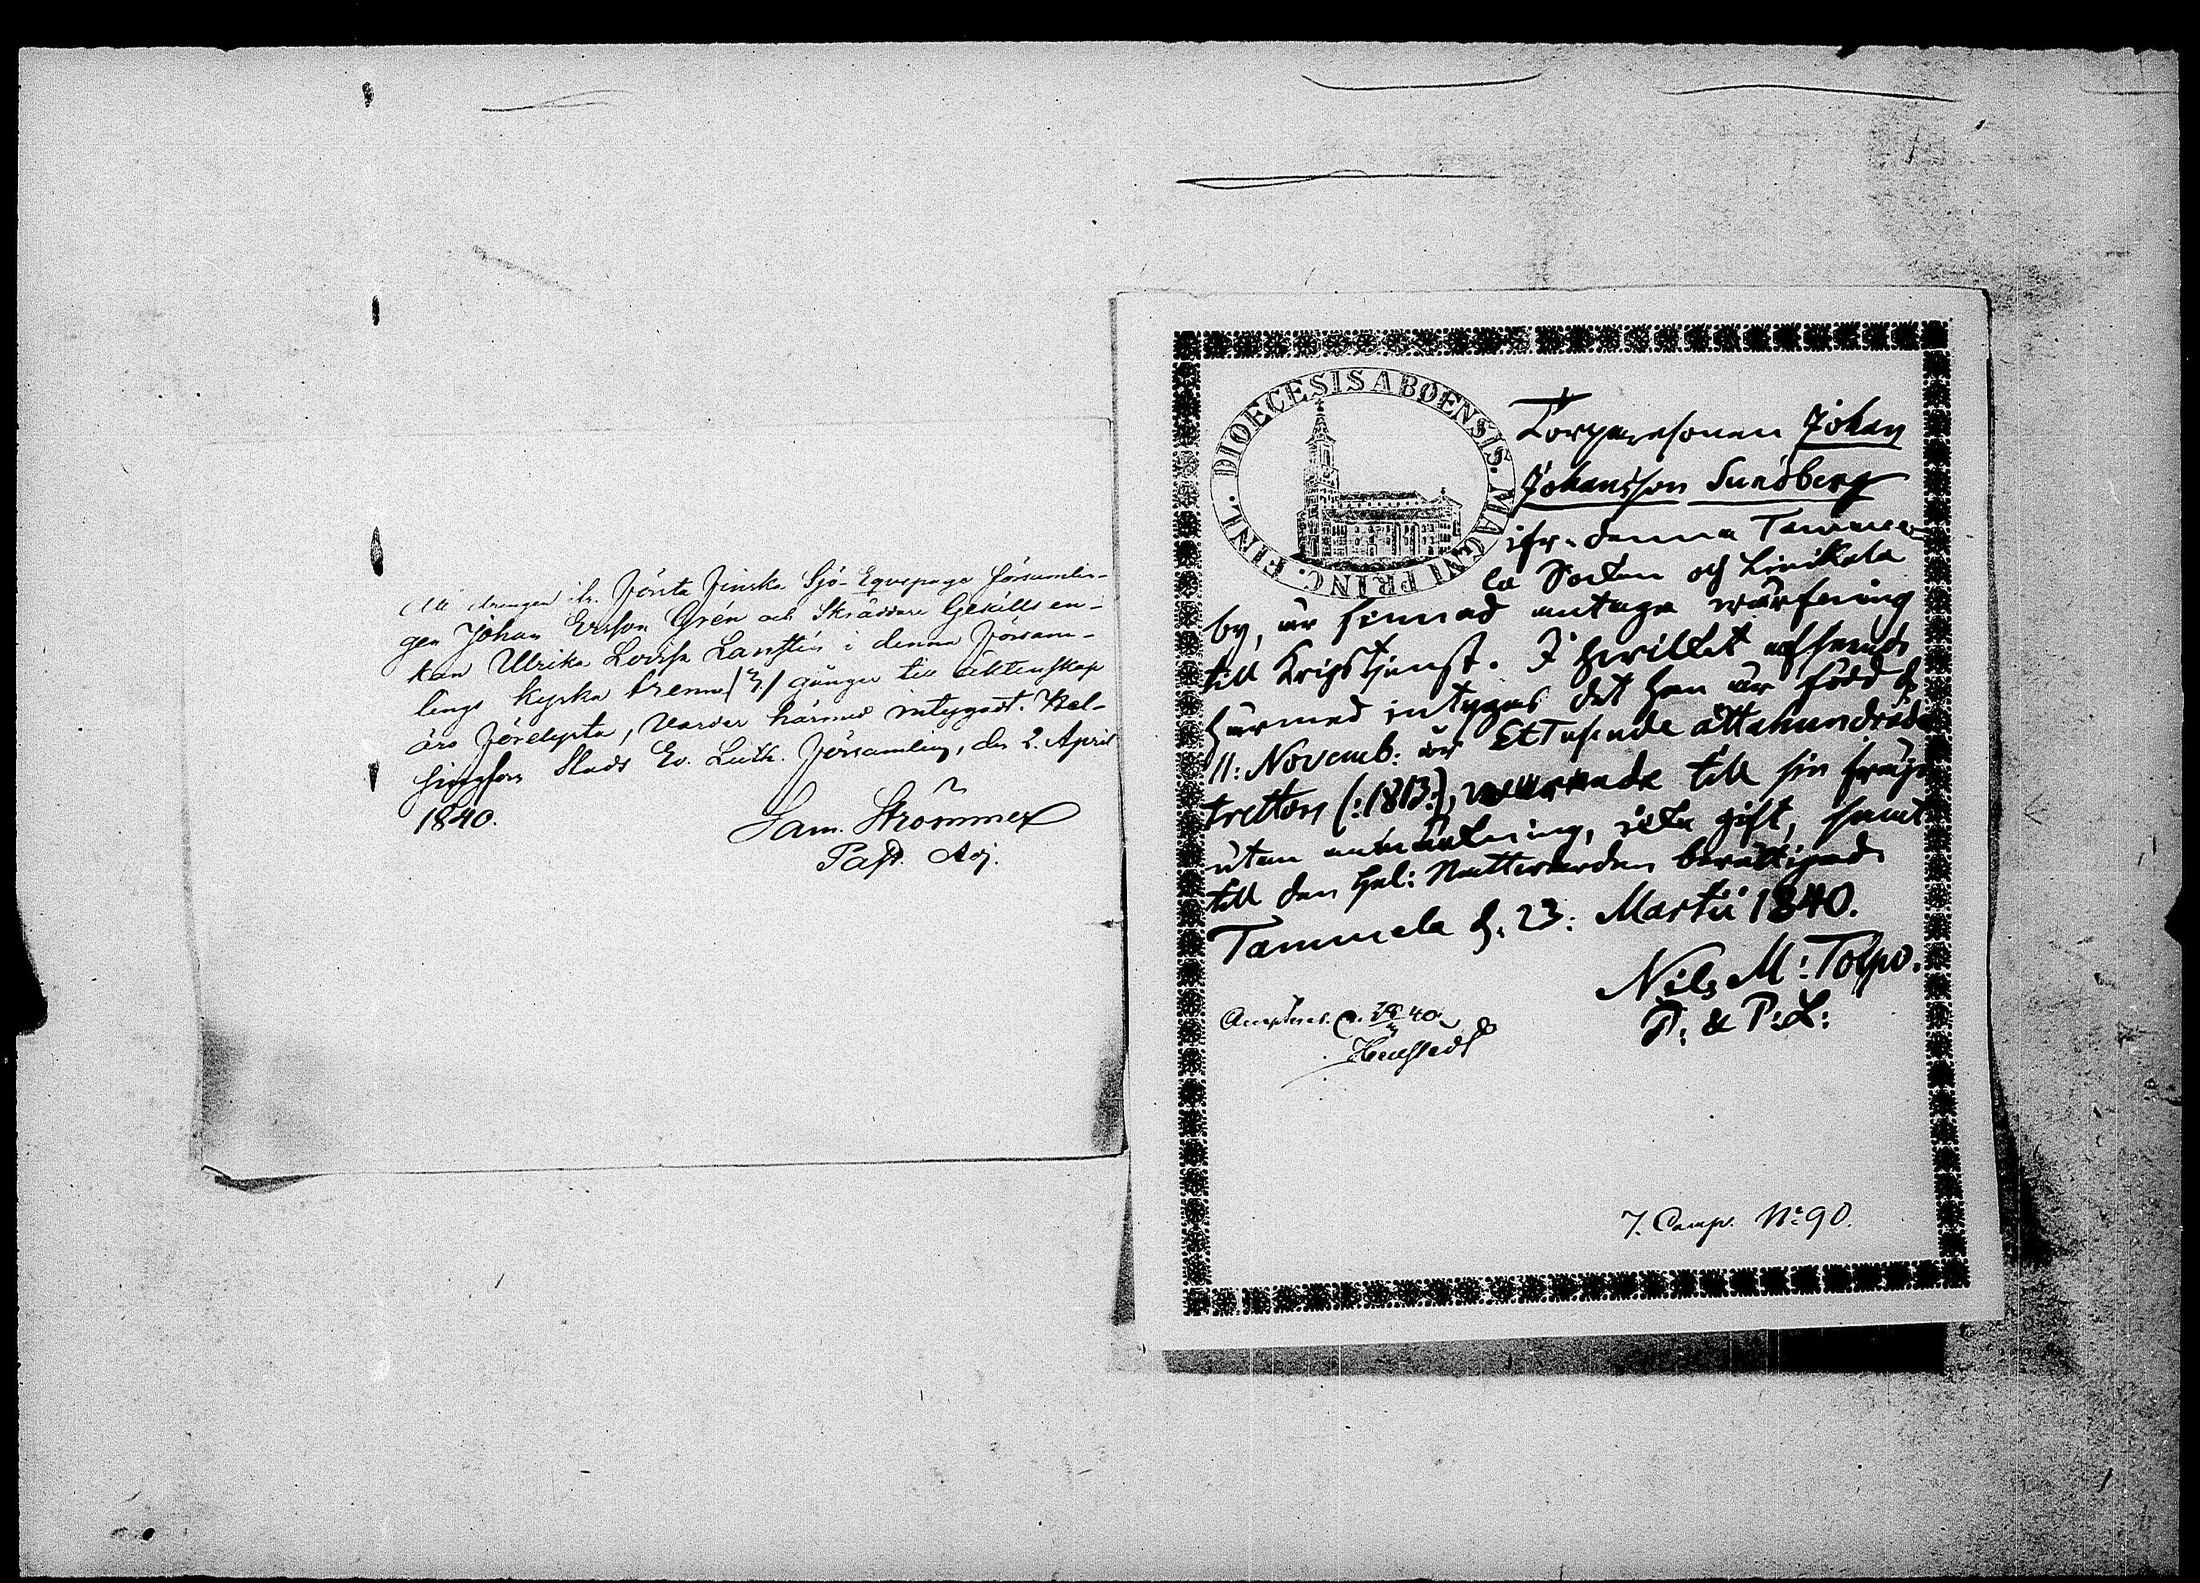 Att drengen ifr. Första Finska Sjö-Equipage Församlin-
gen Johan Ersson Grén och Skräddare Gesälls en-
kan Ulrika Lovisa Lanstén i denna Församl-
lings kyrka trenne /3/ gånger till äktenskap
äro förelysta, varder härmed intygadt. Hel-
singfors Stads Ev. Luth. Församling, den 2. April
1840.
Sam. Strömmer
Past. Adj.
DIOECESIS ABOENSIS. MAGNI PRINC. FINL.
Torparesonen Johan
Johansson Sundberg
ifr. denna Tamme-
la Socken och Liesjärvi
by, är sinnad antaga wärfning
till Krigstjenst. I hvilket afseende
härmed intygas det han är född d.
11: Novemb: år Ettusende åttahundrade
tretton (:1813:), warande till sin fräjd
utan anmärkning, icke gift, samt
till den Hel: Nattwarden berättigad.
Tammela d. 23: Martii 1840.
Nils M: Tolpo.
P: & P: L:
7. Comp. No: 90.